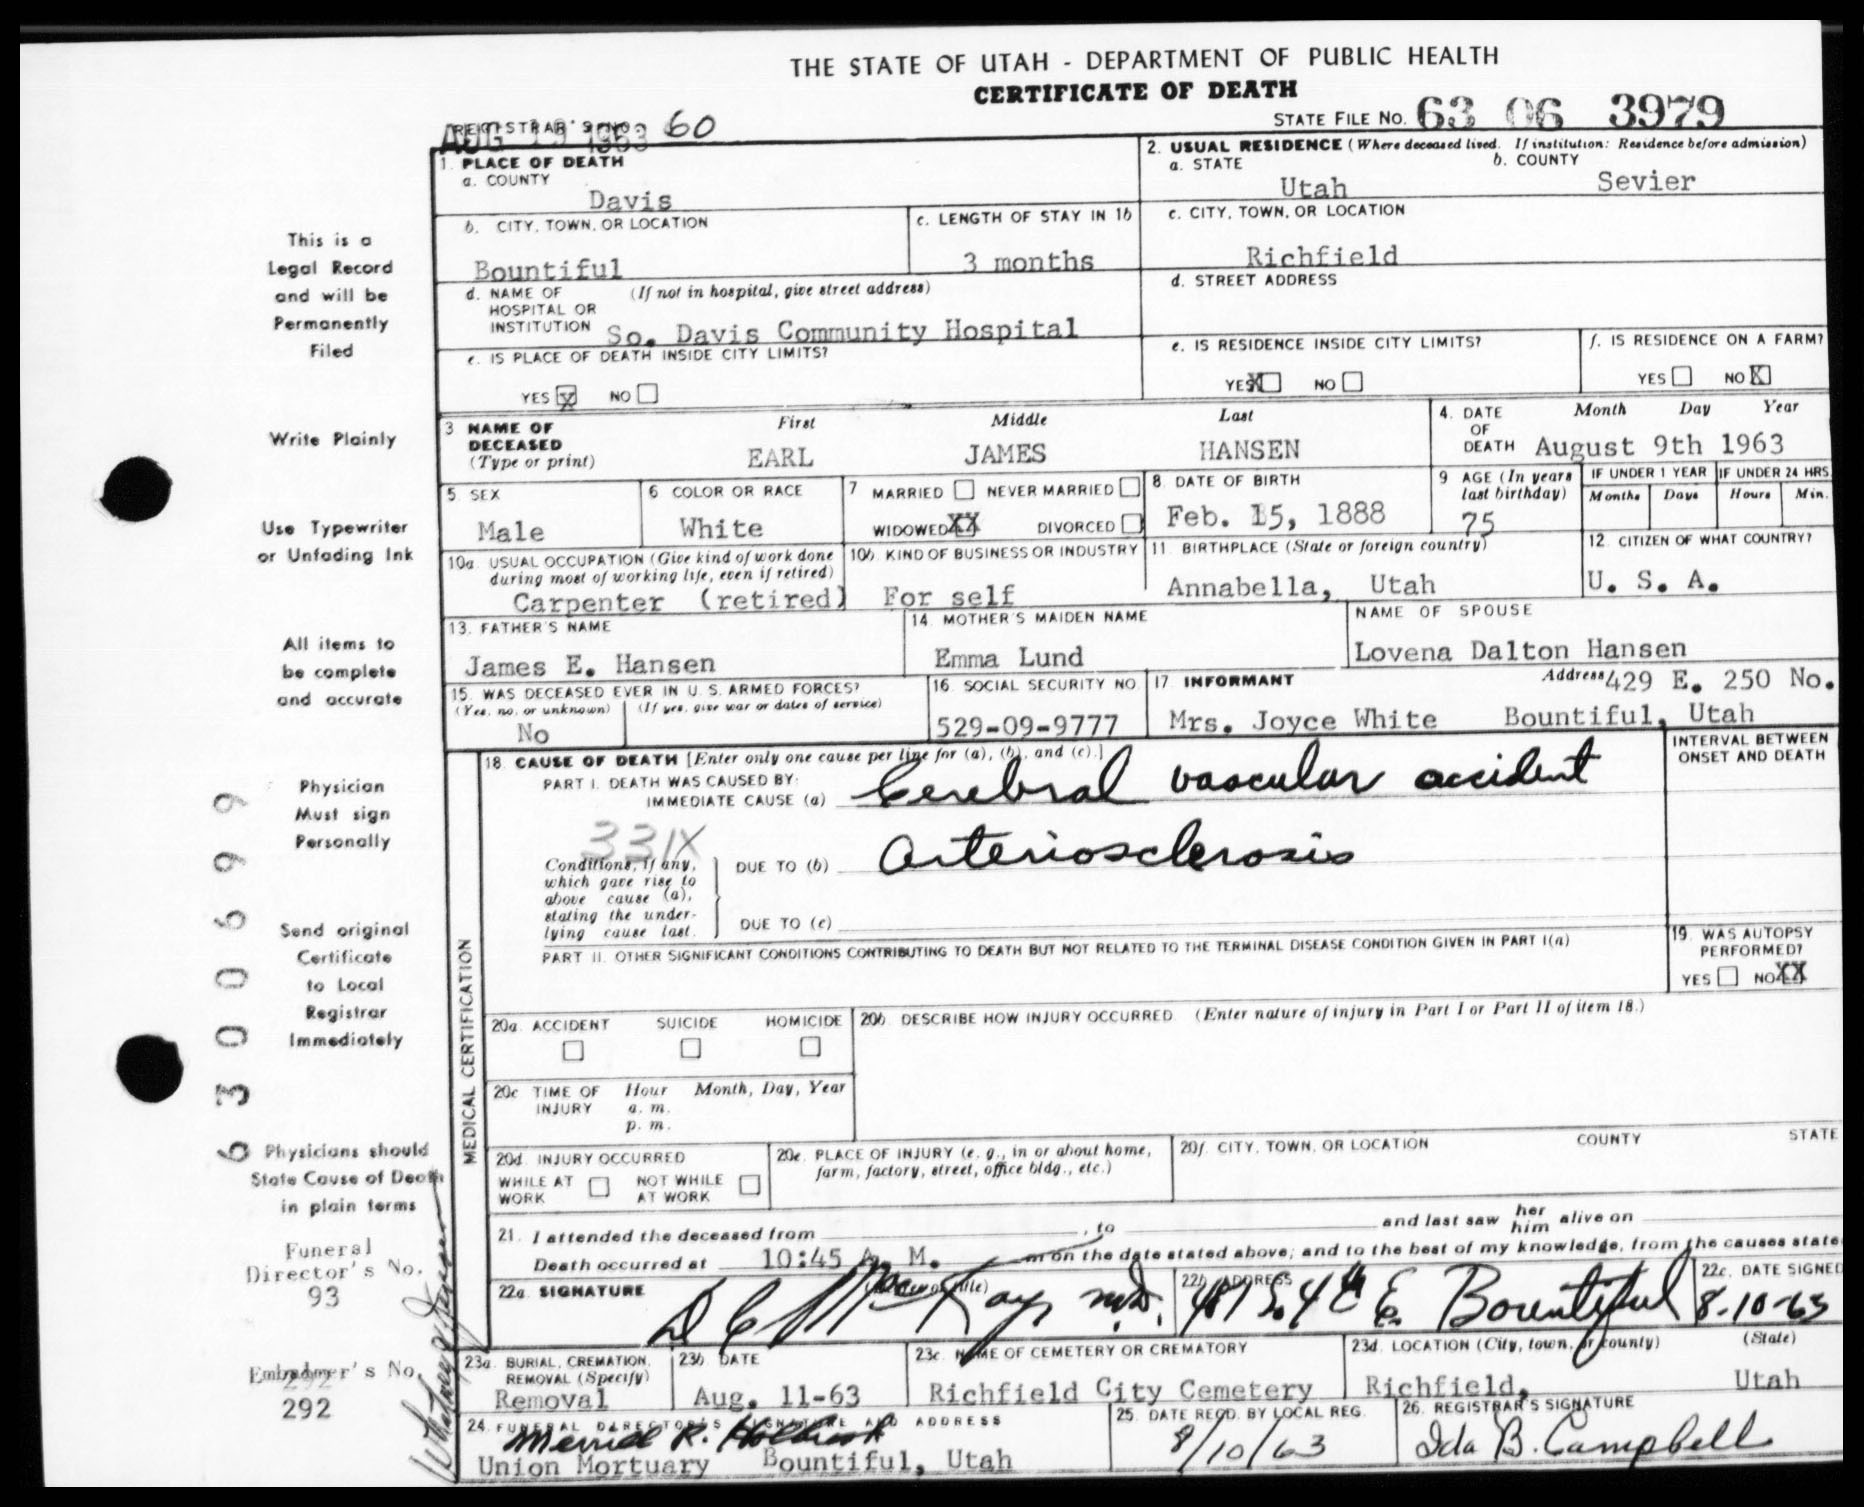 THE STATE OF UTAH - DEPARTMENT OF PUBLIC HEALTH
CERTIFICATE OF DEATH
REGISTRAR'S NO. 60
AUG 13 1963
STATE FILE NO. 63 06 3979
1. PLACE OF DEATH
a. COUNTY
Davis
2. USUAL RESIDENCE (Where deceased lived. If institution: Residence before admission)
a. STATE
Utah
b. COUNTY
Sevier
b. CITY, TOWN, OR LOCATION
Bountiful
c. LENGTH OF STAY IN 1b
3 months
c. CITY, TOWN, OR LOCATION
Richfield
d. NAME OF HOSPITAL OR INSTITUTION (If not in hospital, give street address)
So. Davis Community Hospital
d. STREET ADDRESS
e. IS PLACE OF DEATH INSIDE CITY LIMITS?
YES X NO
e. IS RESIDENCE INSIDE CITY LIMITS?
YES X NO
f. IS RESIDENCE ON A FARM?
YES NO X
3 NAME OF DECEASED (Type or print)
First Middle Last
EARL JAMES HANSEN
4. DATE OF DEATH
Month Day Year
August 9th 1963
5 SEX
Male
6 COLOR OR RACE
White
7 MARRIED NEVER MARRIED
WIDOWED XX DIVORCED
8. DATE OF BIRTH
Feb. 15, 1888
9 AGE (In years last birthday)
75
IF UNDER 1 YEAR
Months Days
IF UNDER 24 HRS.
Hours Min.
10a. USUAL OCCUPATION (Give kind of work done during most of working life, even if retired)
Carpenter (retired)
10b. KIND OF BUSINESS OR INDUSTRY
For self
11. BIRTHPLACE (State or foreign country)
Annabella, Utah
12. CITIZEN OF WHAT COUNTRY?
U. S. A.
13. FATHER'S NAME
James E. Hansen
14. MOTHER'S MAIDEN NAME
Emma Lund
NAME OF SPOUSE
Lovena Dalton Hansen
15. WAS DECEASED EVER IN U. S. ARMED FORCES?
(Yes, no, or unknown) (If yes, give war or dates of service)
No
16. SOCIAL SECURITY NO.
529-09-9777
17. INFORMANT
Mrs. Joyce White
Address 429 E. 250 No.
Bountiful, Utah
MEDICAL CERTIFICATION
18. CAUSE OF DEATH [Enter only one cause per line for (a), (b), and (c).]
INTERVAL BETWEEN ONSET AND DEATH
PART I. DEATH WAS CAUSED BY:
IMMEDIATE CAUSE (a) Cerebral vascular accident
331X
Conditions, if any, which gave rise to above cause (a), stating the underlying cause last.
DUE TO (b) Arteriosclerosis
DUE TO (c)
PART II. OTHER SIGNIFICANT CONDITIONS CONTRIBUTING TO DEATH BUT NOT RELATED TO THE TERMINAL DISEASE CONDITION GIVEN IN PART I(a)
19. WAS AUTOPSY PERFORMED?
YES NO XX
20a. ACCIDENT SUICIDE HOMICIDE
20b. DESCRIBE HOW INJURY OCCURRED (Enter nature of injury in Part I or Part II of item 18.)
20c. TIME OF INJURY
Hour Month, Day, Year
a. m.
p. m.
20d. INJURY OCCURRED
WHILE AT WORK NOT WHILE AT WORK
20e. PLACE OF INJURY (e. g., in or about home, farm, factory, street, office bldg., etc.)
20f. CITY, TOWN, OR LOCATION COUNTY STATE
21. I attended the deceased from , to and last saw her him alive on
Death occurred at 10:45 A. M. m on the date stated above; and to the best of my knowledge, from the causes state
22a. SIGNATURE
D C MacKay M.D.
22b. ADDRESS
S. 4th E. Bountiful
22c. DATE SIGNED
8-10-63
23a. BURIAL, CREMATION, REMOVAL (Specify)
Removal
23b. DATE
Aug. 11-63
23c. NAME OF CEMETERY OR CREMATORY
Richfield City Cemetery
23d. LOCATION (City, town, or county) (State)
Richfield, Utah
24. FUNERAL DIRECTOR'S SIGNATURE AND ADDRESS
Merrill R. Holbrook
Union Mortuary Bountiful, Utah
25. DATE RECD. BY LOCAL REG.
8/10/63
26. REGISTRAR'S SIGNATURE
Ida B. Campbell
This is a
Legal Record
and will be
Permanently
Filed
Write Plainly
Use Typewriter
or Unfading Ink
All items to
be complete
and accurate
Physician
Must sign
Personally
Send original
Certificate
to Local
Registrar
Immediately
Physicians should
State Cause of Death
in plain terms
Funeral
Director's No.
93
Embalmer's No.
292
292
6 3 0 6 9 9